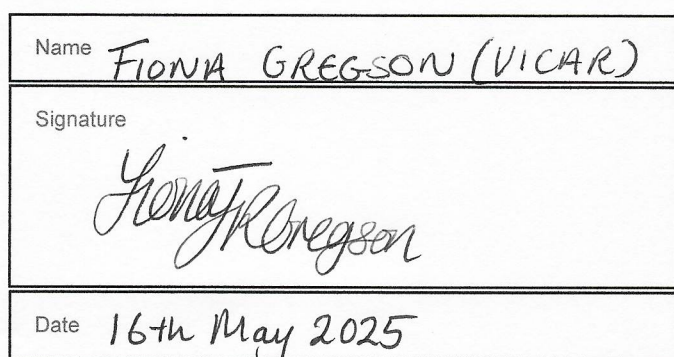 Name FIONA GREGSON (VICAR)
Signature
Fiona J R Gregson
Date 16th May 2025